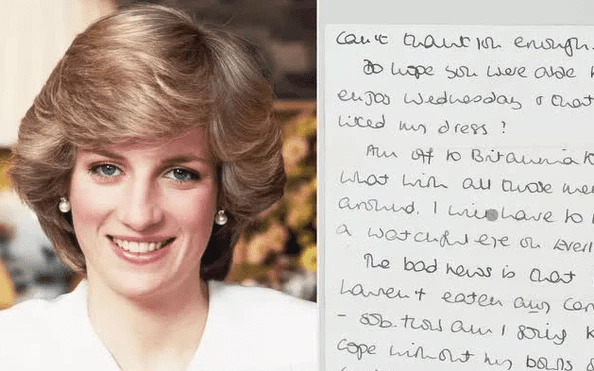 can't thank you enough.
Do hope you were able
enjoy Wednesday & that
liked my dress?
Am off to Britannia
what with all those
around. I will have to
a watchful eye on
The bad news is that
haven't eaten any
- sob. How am I going
cope without my